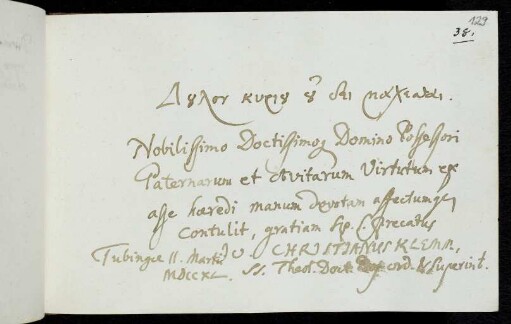 129
38.
Δȣλον κυριȣ ȣ̓ δει μαχεσθαι.
Nobilissimo Doctissimoq Domino Possessori
Paternarum et Avitarum Virtutum ex
asse hæredi manum devotam affectumq
contulit, gratiam Sp. S. precatus
Tubingæ 11. Martij CHRISTIANUS KLEMM,
MDCCXL. SS. Theol. Doct. ord. & Superint.